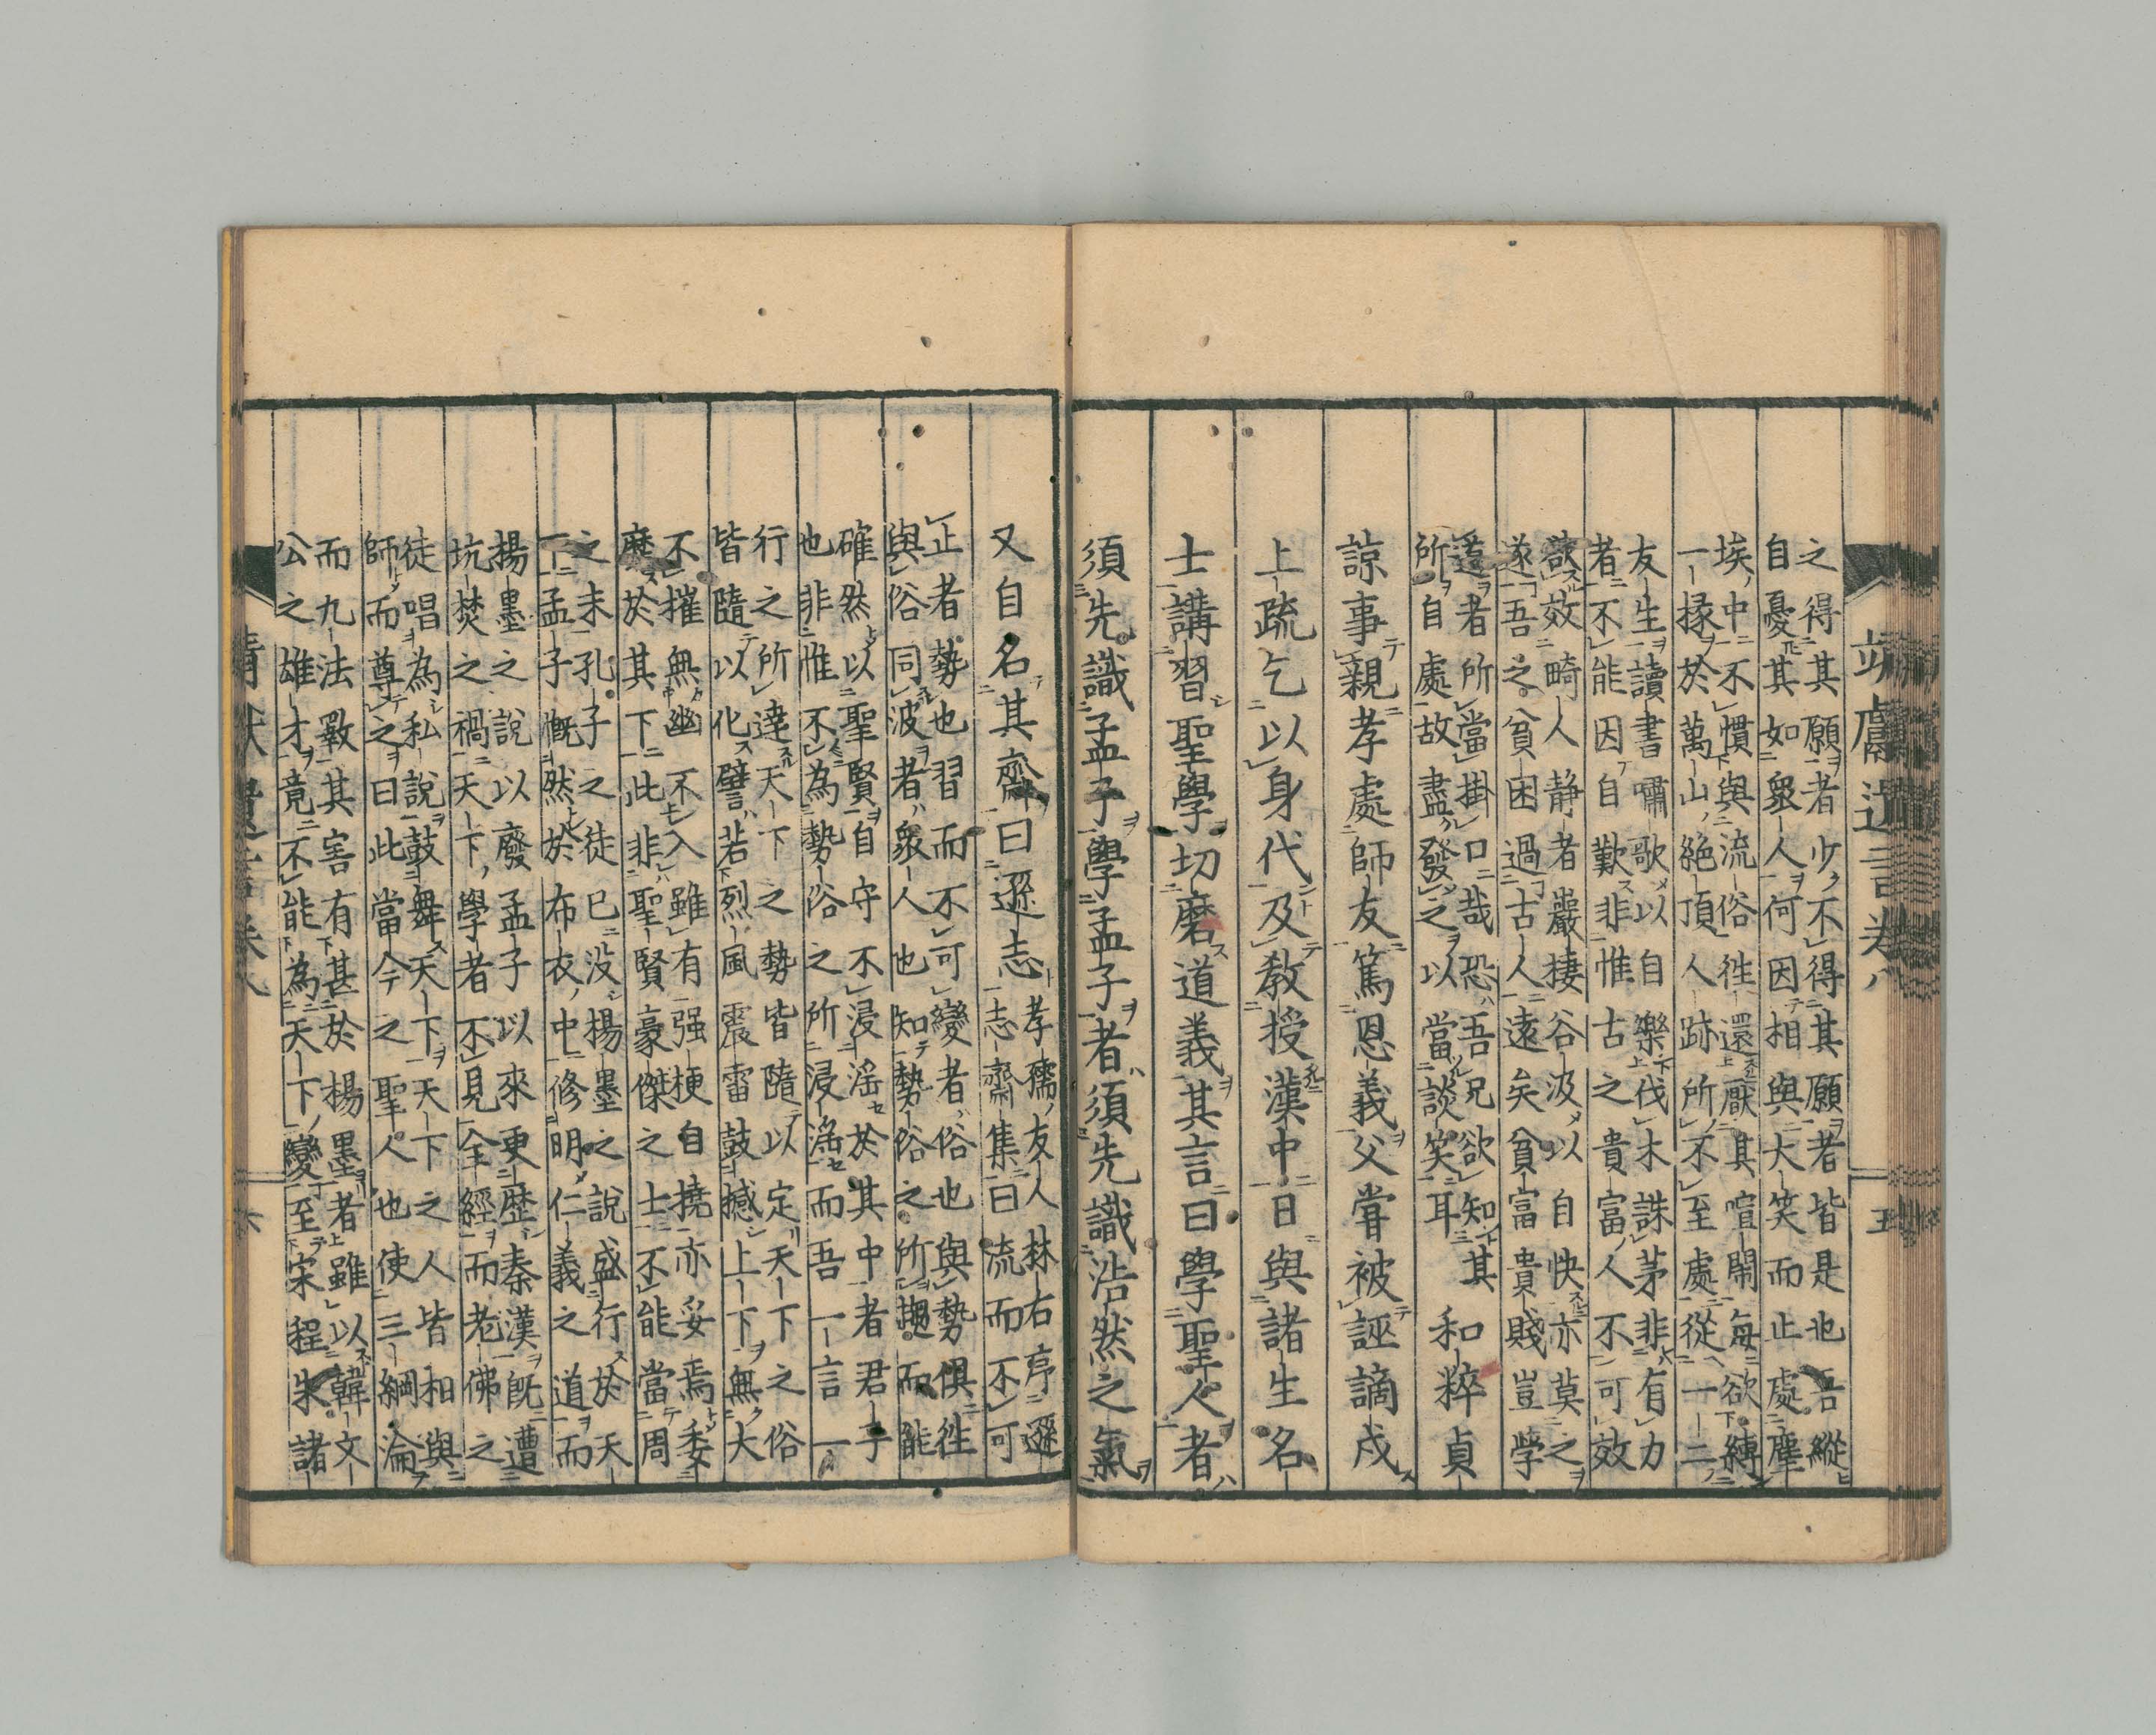 之得其願者少不得其願者皆是也吾縱
自憂其如衆人何因相與大笑而止處塵
埃中不慣與流俗徃還厭其喧鬧每欲縛
一椽於萬山絶頂人跡所不至處從一二
友生讀書嘯歌以自樂伐木誅茅非有力
者不能因自歎非惟古之貴富人不可效
欲效畸人静者巖棲谷汲以自快亦莫之
遂吾之貧困過古人遠矣貧富貴賤豈学
道者所當掛口哉恐吾兄欲知其
所自處故盡發之以當談笑耳
和粹貞
諒事親孝處師友篤恩義父嘗被誣謫戍
上疏乞以身代及敎授漢中日與諸生名
士講習聖學切磨道義其言曰學聖人者
須先識孟子學孟子者須先識浩然之氣
又自名其齋曰遜志
孝孺友人林右序遜
志齋集曰流而不可
正者勢也習而不可變者俗也與勢俱徃
與俗同波者衆人也知勢俗之所趨而能
確然以聖賢自守不浸淫於其中者君子
也非惟不為勢俗之所浸淫而吾一言一
行之所達天下之勢皆隨以定天下之俗
皆隨以化譬若烈風震雷鼓撼上下無大
不摧無幽不入雖有强梗自撓亦妥焉委
靡於其下此非聖賢豪傑之士不能當周
之末孔子之徒已没揚墨之說盛行於天
下孟子慨然於布衣中修明仁義之道而
揚墨之說以廢孟子以來更歴秦漢既遭
坑焚之禍天下學者不見全經而老佛之
徒唱為私說鼓舞天下天下之人皆相與
師而尊之曰此當今之聖人也使三綱淪
而九法斁其害有甚於楊墨者雖以韓文
公之雄才竟不能為天下變至宋程朱諸